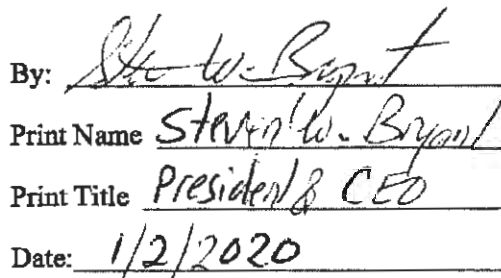 By: Steven W. Bryant
Print Name Steven W. Bryant
Print Title President & CEO
Date: 1/2/2020